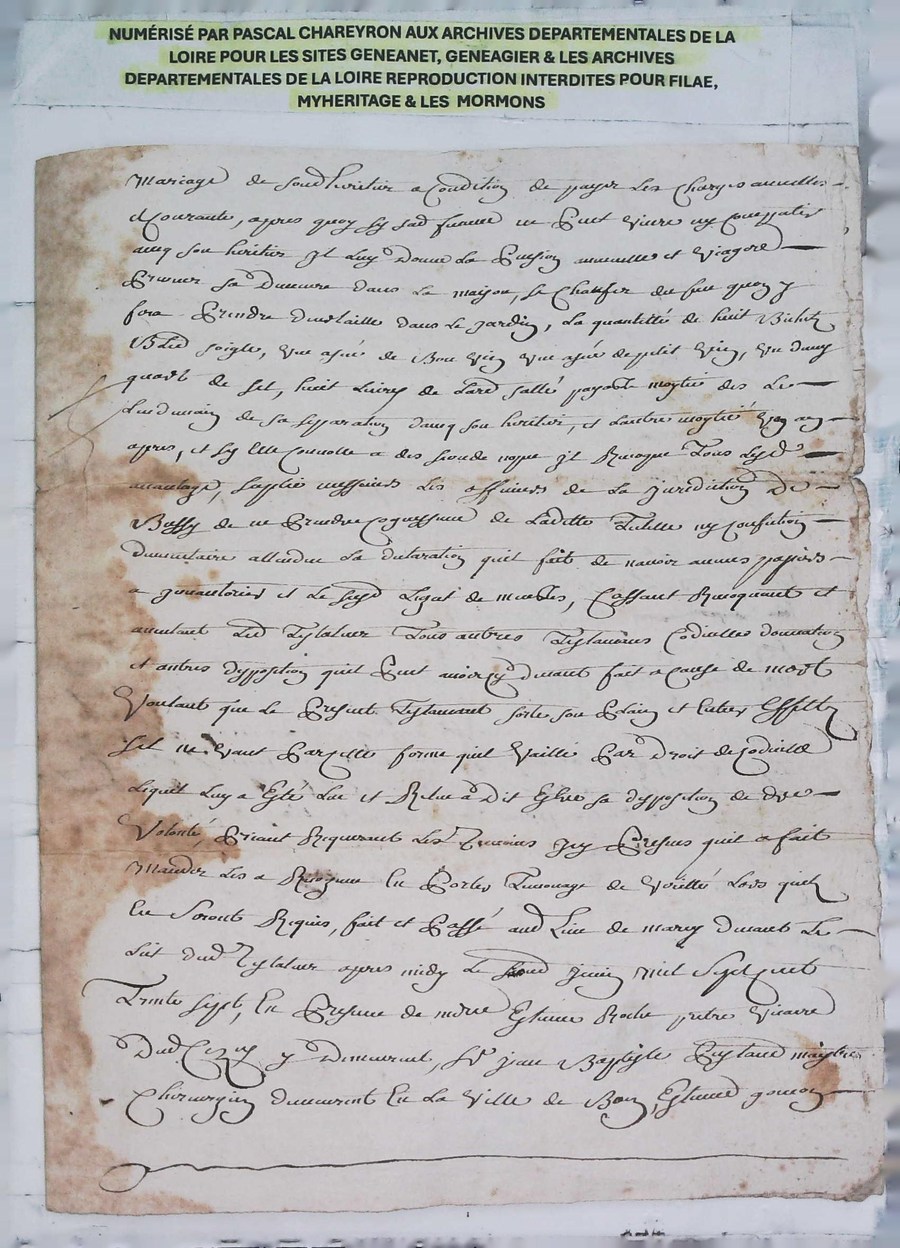 NUMÉRISÉ PAR PASCAL CHAREYRON AUX ARCHIVES DEPARTEMENTALES DE LA
LOIRE POUR LES SITES GENEANET, GENEAGIER & LES ARCHIVES
DEPARTEMENTALES DE LA LOIRE REPRODUCTION INTERDITES POUR FILAE,
MYHERITAGE & LES MORMONS
Mariage de sond heritier a Condition de payer les Charges annuelles
et Courante, apres quoy sy sad femme ne peut vivre ny compatir
avecq son heritier jl luy donne la pension annuelle et viagere
prener sa demeure dans la maison, se chauffer du feu quon y
fera prendre dans le jardin, la quantitté de huit Bichets
Bled seigle, une de Bon vin une de petit vin, un demy
quart de sel, huit livres de lard sallé payable moytié des le
lendemain de sa separation davecq son heritier, et lautre moytié un an
apres, et sy elle convolle a des seconde nopce jl Revoque tous lesd
avantage, suplie messieurs les officiers de la jurisdiction de
Bussy de ne prendre de laditte Tutelle ny confection
dinventaire attendue la declaration quil fait de navoir aucuns papiers
a et le susd Legat de meubles, Cassant Revoquant et
annulant led Testateur tous autres Testaments Codicilles donnation
et autres disposition quil peut avoir cy devant fait a cause de mort
Voulant que le present Testament sorte son plain et entier Effetts
sel ne vaut par telle forme quil vaille par droit de Codicille
lequel luy a Esté lue et Relue a dit Estre sa disposition de dre
Volonté, priant Requerant les Temoins jcy presens quil a fait
mander les a Recognue En porter Temoniage de veritté lors quils
En seronts Requis, fait et passé aud lieu de marcy devant le
lit dud Testateur apres midy le juin mil sept cent
Trente sept, En presence de mre Estienne Roche pretre vicaire
dud y demeurant, sr jean Baptiste maytre
Chirurgien demeurent En la ville de Boen, Estienne